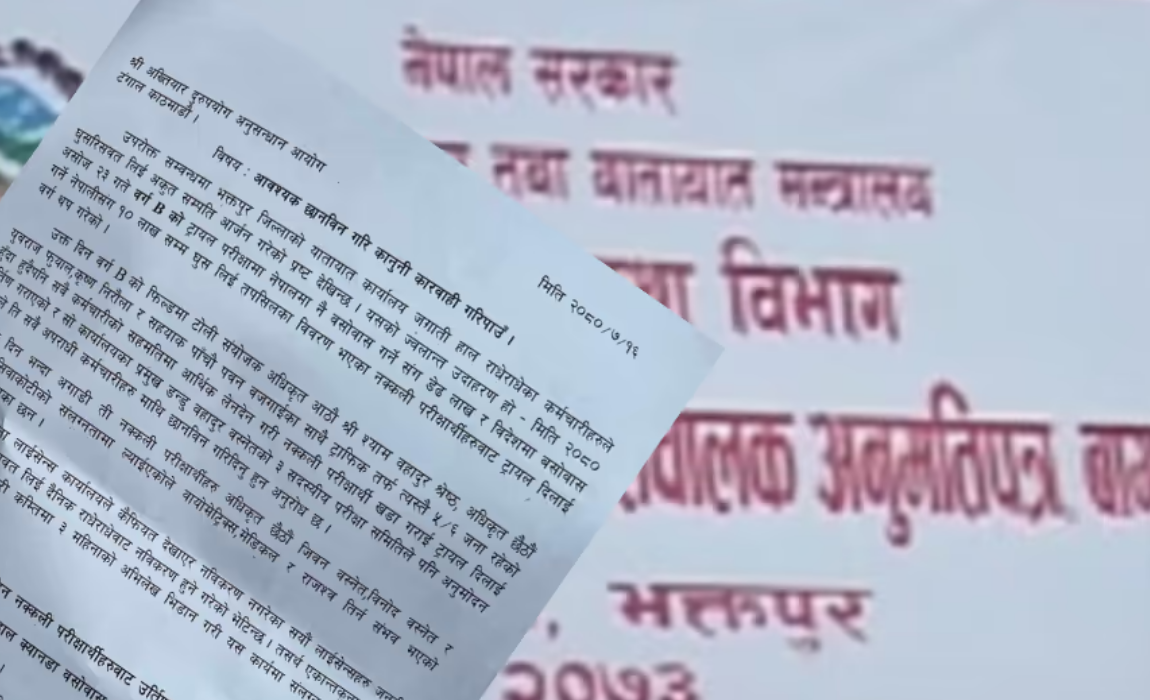 नेपाल सरकार
तथा यातायात मन्त्रालय
विभाग
चालक अनुमतिपत्र
, भक्तपुर
२०७३
श्री अख्तियार दुरुपयोग अनुसन्धान आयोग
टंगाल काठमाडौं।
मिति २०८०/७/१६
विषय : आवश्यक छानविन गरि कानुनी कारवाही गरिपाउँ ।
उपरोक्त सम्बन्धमा भक्तपुर जिल्लाको यातायात कार्यालय जगाती हाल राधेराधेका कर्मचारीहरुले
घुसरिसवत लिई अकुत सम्पति आर्जन गरेको प्रष्ट देखिन्छ । यसको ज्वलान्त उदाहरण हो - मिति २०८०
असोज २३ गते वर्ग B को ट्रायल परीक्षामा नेपालमा नै बसोवास गर्ने संग डेढ लाख र विदेशमा बसोवास
गर्ने नेपालीसंग १० लाख सम्म घुस लिई तपसिलका विवरण भएका नक्कली परीक्षार्थीहरुबाट ट्रायल दिलाई
वर्ग थप गरेको ।
उक्त दिन वर्ग B को फिल्डमा टोली संयोजक अधिकृत आठौं श्री श्याम बहादुर श्रेष्ट, अधिकृत छैठौं
युवराज फुयाल,कृष्ण निरौला र सहायक पाँचौ पवन बजगाईका साथै ट्राफिक तर्फ त्यस्तै ५/६ जना रहेको
हुँदा हुदैपनि सबै कर्मचारीको सहमतिमा आर्थिक लेनदेन गरी नक्कली परीक्षार्थी खडा गराई ट्रायल दिलाई
गराएको र सो कार्यालयका प्रमुख डन्डु बहादुर बस्नेतको ३ सदस्यीय परीक्षा समितिले पनि अनुमोदन
ति सबै अपराधी कर्मचारीहरु माथि छानविन गरिदिनु हुन अनुरोध छ ।
दिन भन्दा अगाडी ती नक्कली परीक्षार्थीहरु अधिकृत छैठौं जिवन बस्नेत,विनोद बस्नेत र
सिवाकोटीको संलग्नतामा ल्याईएकोले बायोमेट्रिक्स,मेडिकल र राजश्व तिर्न संभव भएको
छन् ।
लाईसेन्स कार्यालयले कैफियत देखाएर नविकरण नगरेका सयौं लाईसेन्सहरु
लिई दैनिक राधेराधेबाट नविकरण हुने गरेको भेटिन्छ । तसर्थ
कम्तिमा ३ महिनाको अभिलेख भिडान गरी यस कार्यमा
नक्कली परीक्षार्थीहरुबाट
क्यानडा